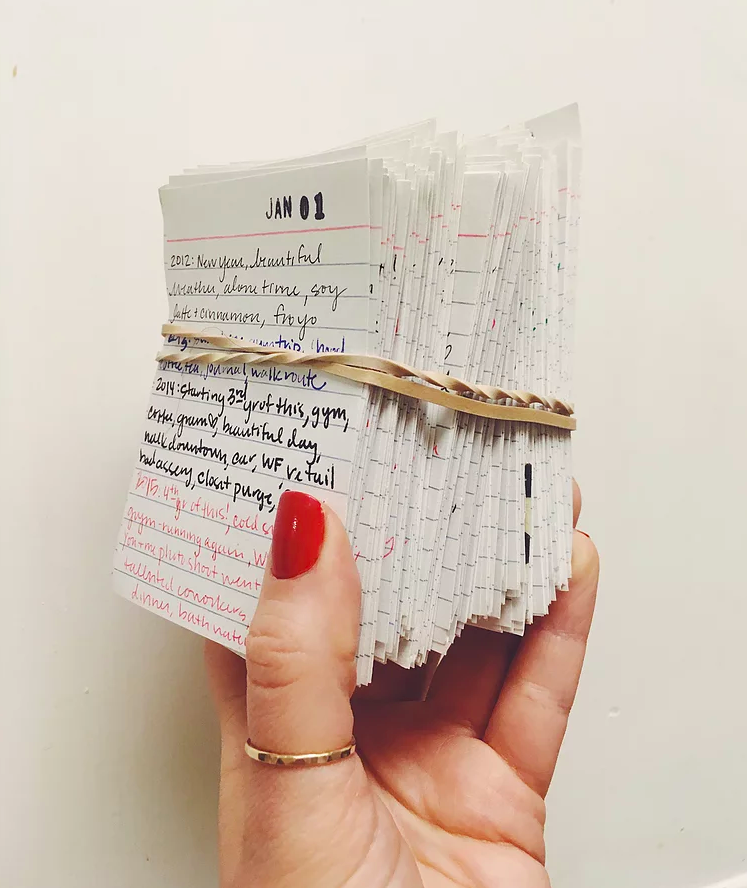 JAN 01
2012: New year, beautiful
weather, alone time, soy
latte + cinnamon, froyo
coffee, tea, journal, walk route
2014: starting 3rd yr of this, gym,
coffee, gram♡, beautiful day,
walk downtown, car, WF retail
badassery, closet purge,
2015: 4th yr of this! cold
gym-running again, W
photoshoot went
talented coworkers
dinner, bath